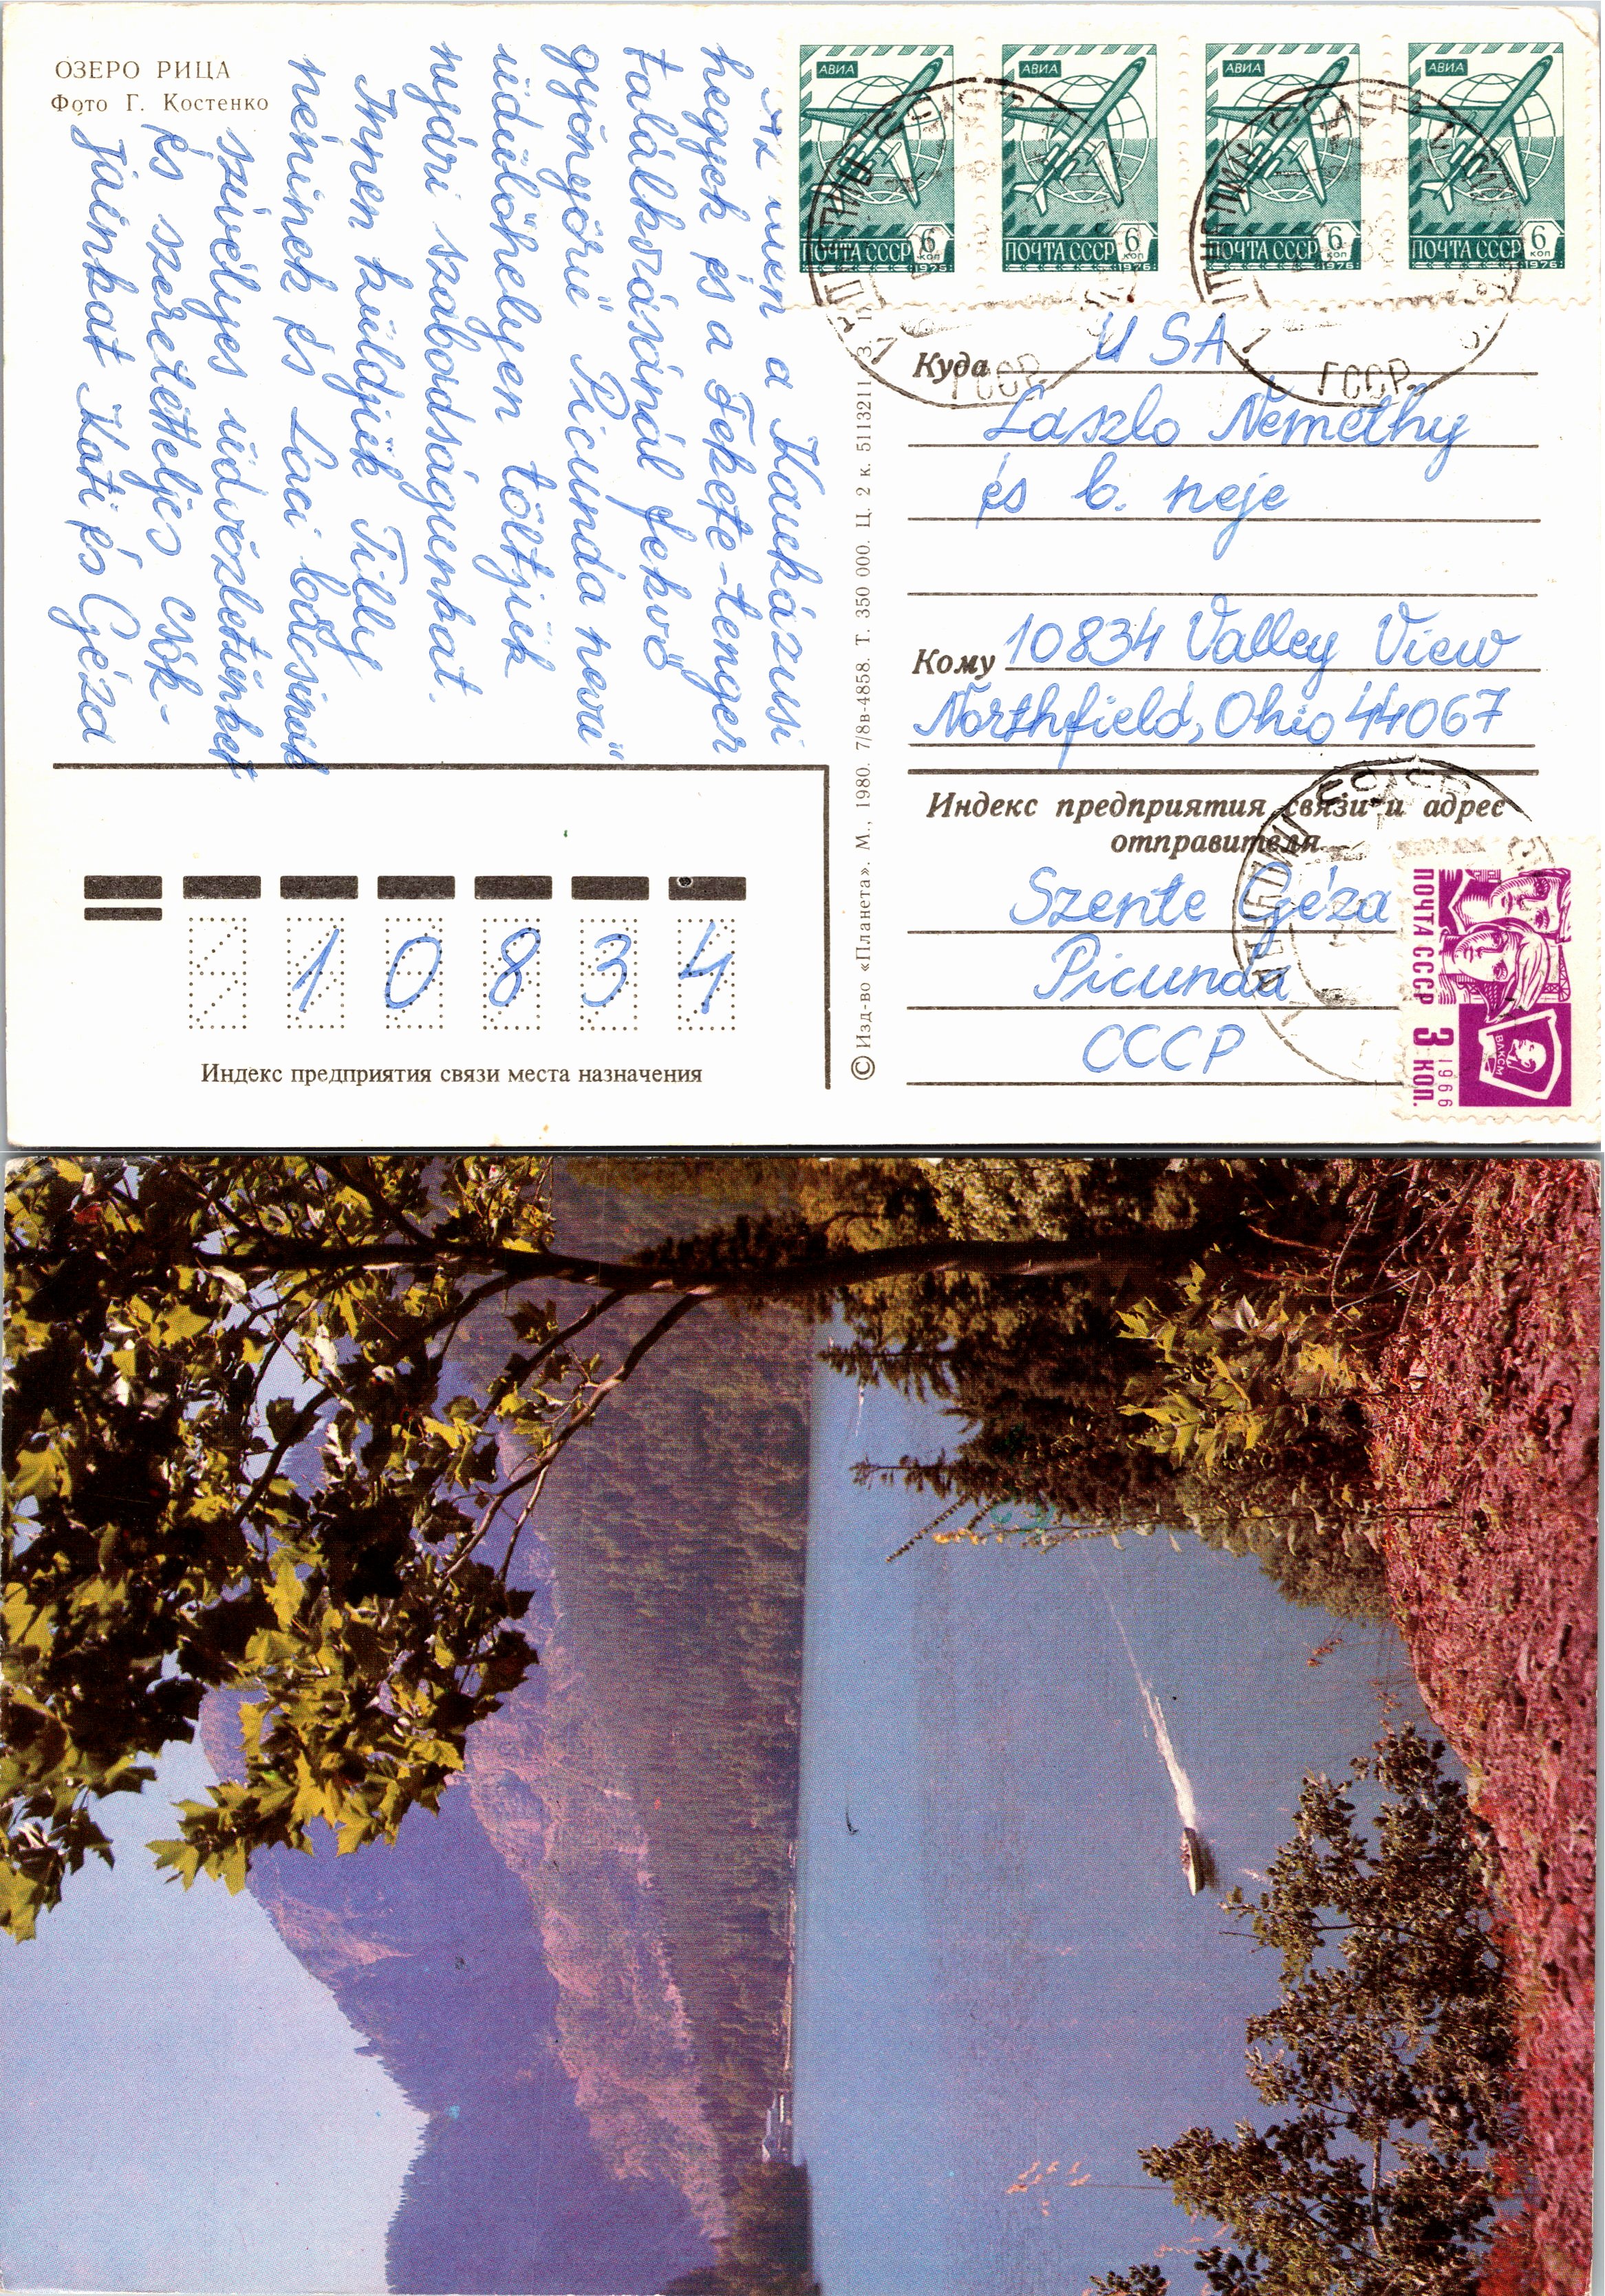 ОЗЕРО РИЦА
Фото Г. Костенко
a Kaukázusi
hegyek és a Fekete-tenger
találkozásánál fekvő
gyönyörű Picunda nevű
üdülőhelyen töltjük
nyári szabadságunkat.
Innen küldjük Tilly
néninek és Laci bácsinak
szívélyes üdvözletünket
és szeretetteljes csók-
jainkat Kati és Géza
АВИА
ПОЧТА СССР 6 коп
1976
АВИА
ПОЧТА СССР 6 коп
1976
АВИА
ПОЧТА СССР 6 коп
1976
АВИА
ПОЧТА СССР 6 коп
1976
Куда USA
Laszlo Némethy
és b. neje
Кому 10834 Valley View
Northfield, Ohio 44067
Индекс предприятия связи и адрес
отправителя
Szente Géza
Picunda
СССР
ПОЧТА СССР 3 КОП.
1966
ВЛКСМ
© Изд-во «Планета». М., 1980. 7/8в-4858. Т. 350 000. Ц. 2 к. 511321
10834
Индекс предприятия связи места назначения